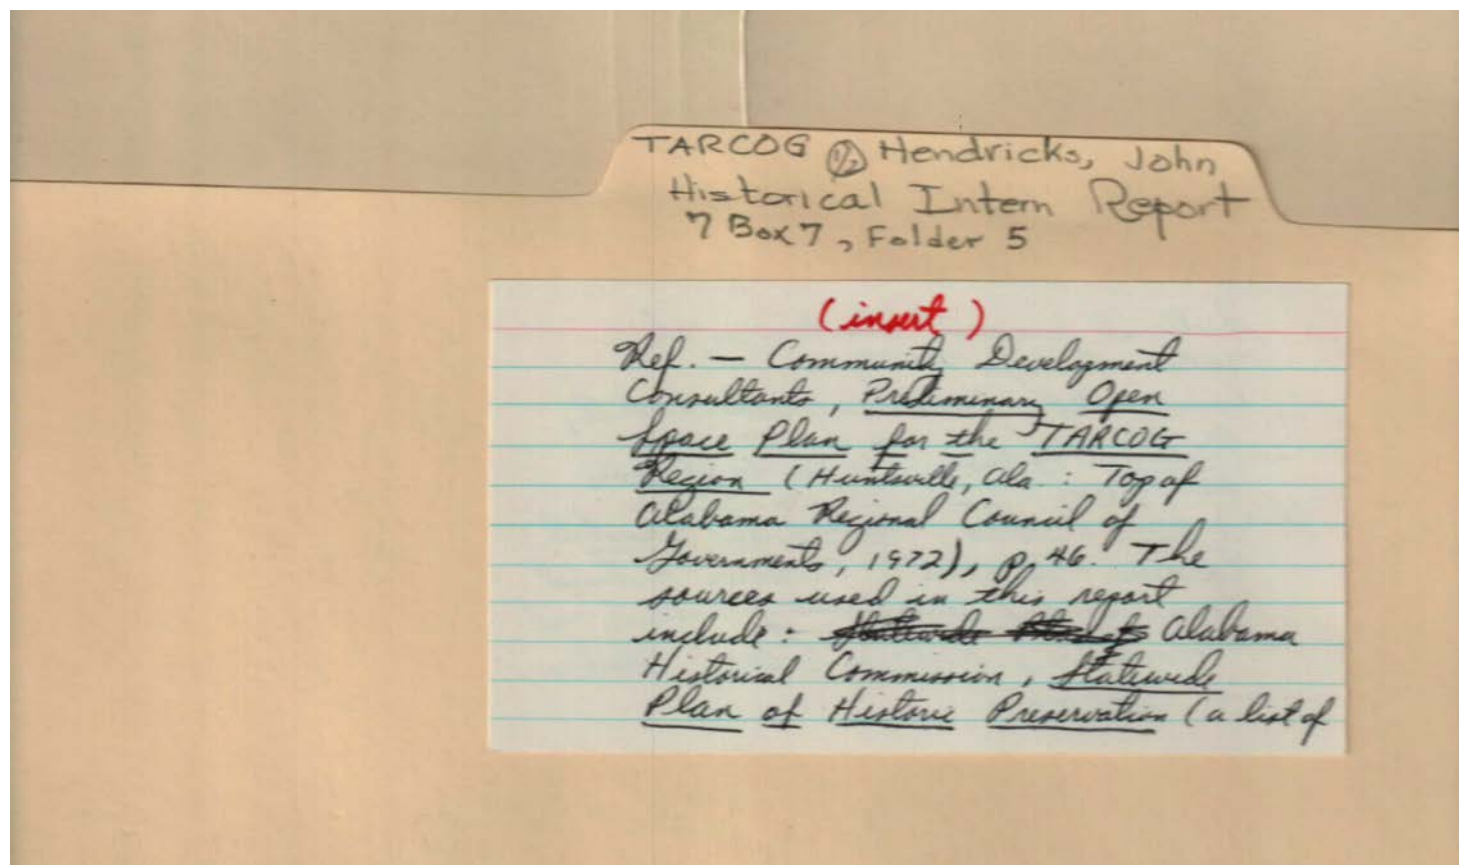 TARCOG 1/2 Hendricks, John
Historical Intern Report
7 Box 7, Folder 5
(insert)
Ref. — Community Development
Consultants, Preliminary Open
Space Plan for the TARCOG
Region (Huntsville, Ala. : Top of
Alabama Regional Council of
Governments, 1972), p. 46. The
sources used in this report
include : Alabama
Historical Commission, Statewide
Plan of Historic Preservation (a list of